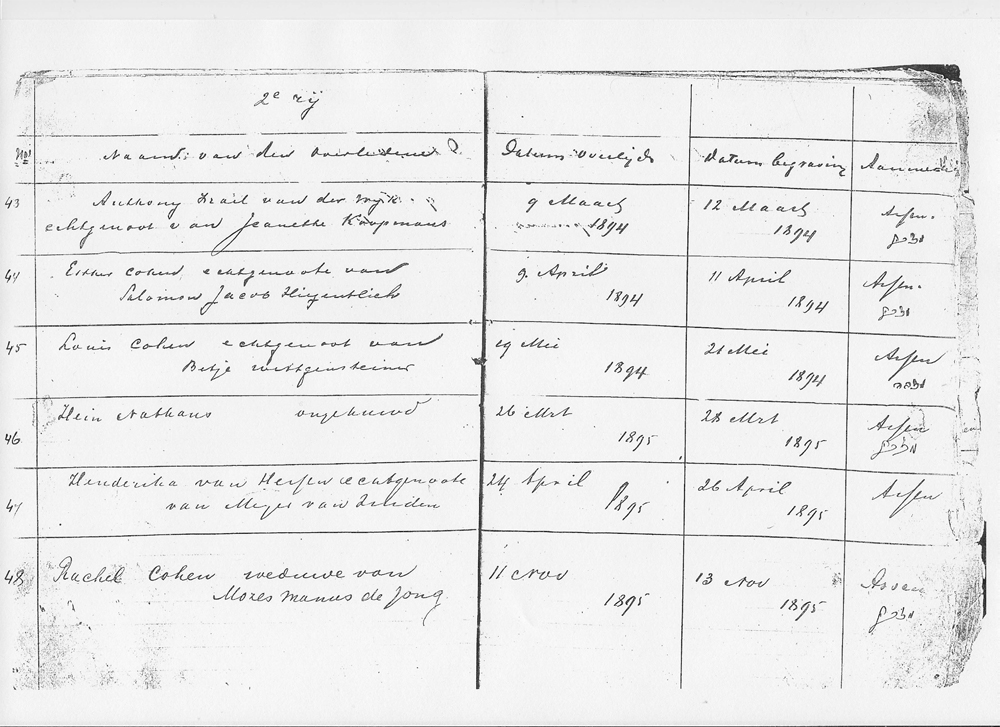 2e rij
No Naam van den overledene Datum overlijds datum begraving Aanmerk
43 Anthony Izrail van der Wijk 9 Maart 12 Maart Assen.
echtgenoot van Jeanette Koopmans 1894 1894
44 Esther Cohen echtgenoote van 9 April 11 April Assen.
Salomon Jacob Higentlich 1894 1894
45 Louis Cohen echtgenoot van 19 Mei 21 Mei Assen
Betje Wittgensteiner 1894 1894
Hein Nathans ongehuwd 26 Mrt 28 Mrt Assen
46 1895 1895
Henderika van Hessen echtgenoote 24 April 26 April Assen
47 van Meijer van 1895 1895
48 Rachel Cohen weduwe van 11 Nov 13 Nov Assen
Mozes Manus de Jong 1895 1895